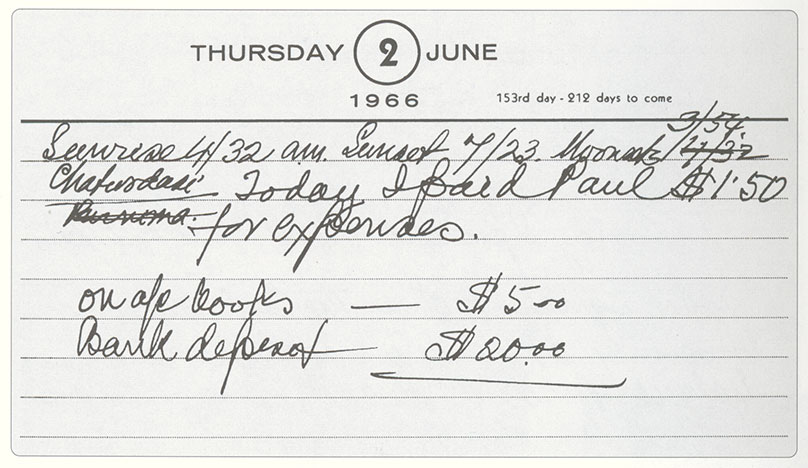 THURSDAY 2 JUNE
1966
153rd day - 212 days to come
3/54.
Sunrise 4/32 a.m. Sunset 7/23. Moonset 4/32
Chaturdasi Today I paid Paul $1.50
Purnima. for expenses.
on a/c books — $5-00
Bank deposit — $20.00